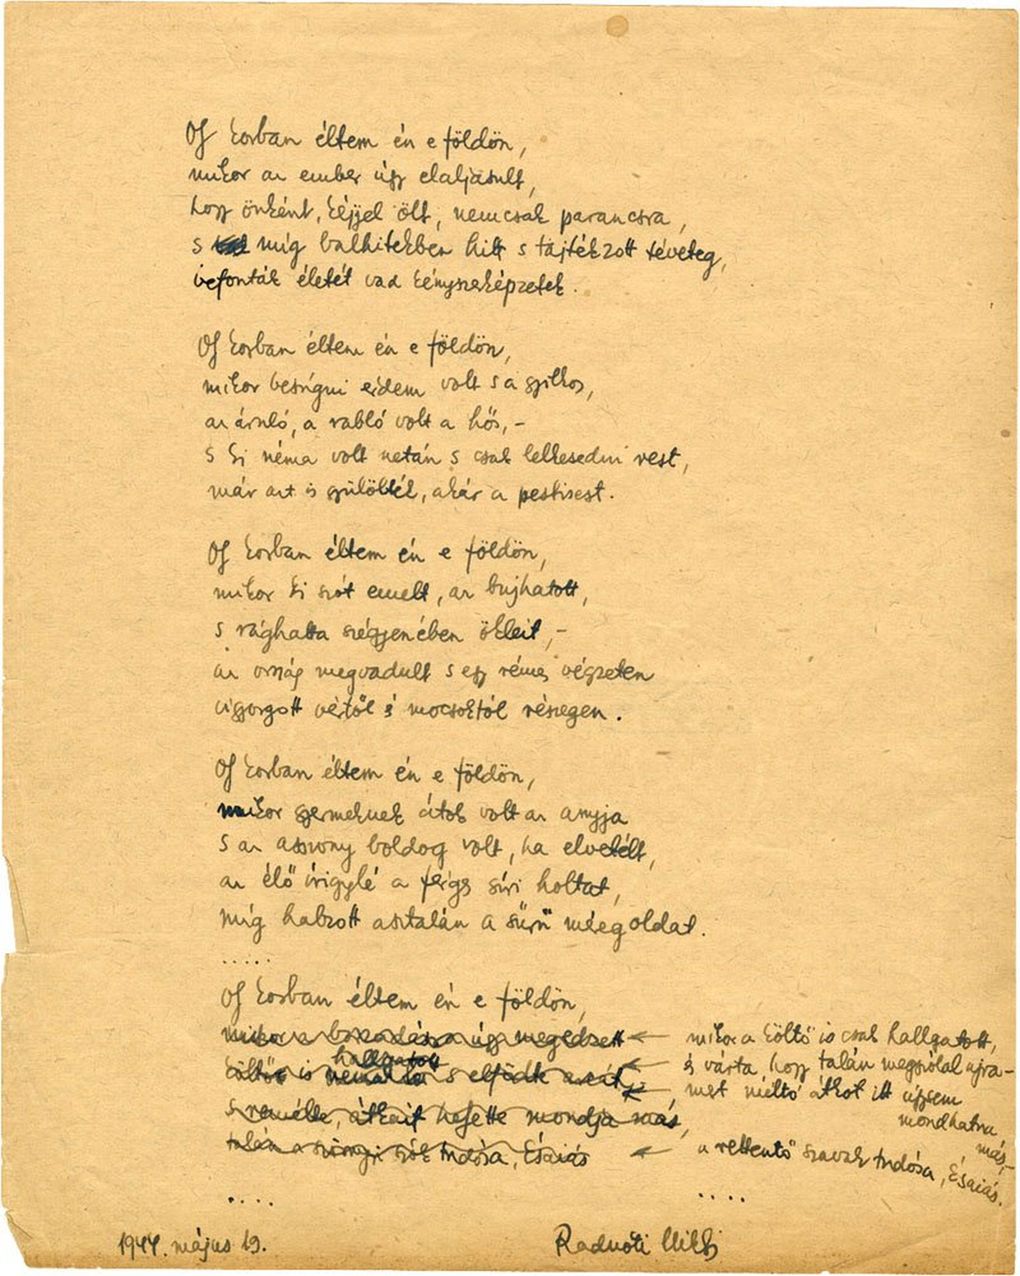 Oly korban éltem én e földön,
mikor az ember úgy elaljasult,
hogy önként, kéjjel ölt, nemcsak parancsra,
s míg balhitekben hitt s tajtékzott téveteg,
befonták életét vad kényszerképzetek.
Oly korban éltem én e földön,
mikor besúgni érdem volt s a gyilkos,
az áruló, a rabló volt a hős,-
s ki néma volt netán s csak lelkesedni rest,
már azt is gyülölték, akár a pestisest.
Oly korban éltem én e földön,
mikor ki szót emelt, az bujhatott,
s rághatta szégyenében ökleit,-
az ország megvadult s egy rémes végzeten
vigyorgott vértől és mocsoktól részegen.
Oly korban éltem én e földön,
mikor gyermeknek átok volt az anyja
s az asszony boldog volt, ha elvetélt,
az élő írigylé a férges síri holtat,
míg habzott asztalán a sűrű méregoldat.
.....
Oly korban éltem én e földön,
mikor a borzadásra úgy megedzett
hallgatott
költő is s elfödte arcát,
s remélte, átkait helyette mondja más,
talán a szörnyü szók tudósa, Ésaiás
mikor a költő is csak hallgatott,
és várta, hogy talán megszólal ujra-
mert méltó átkot itt úgysem
mondhatna
más,-
a rettentő szavak tudósa, Ésaiás.
.... ....
1944. május 19.
Radnóti Miklós